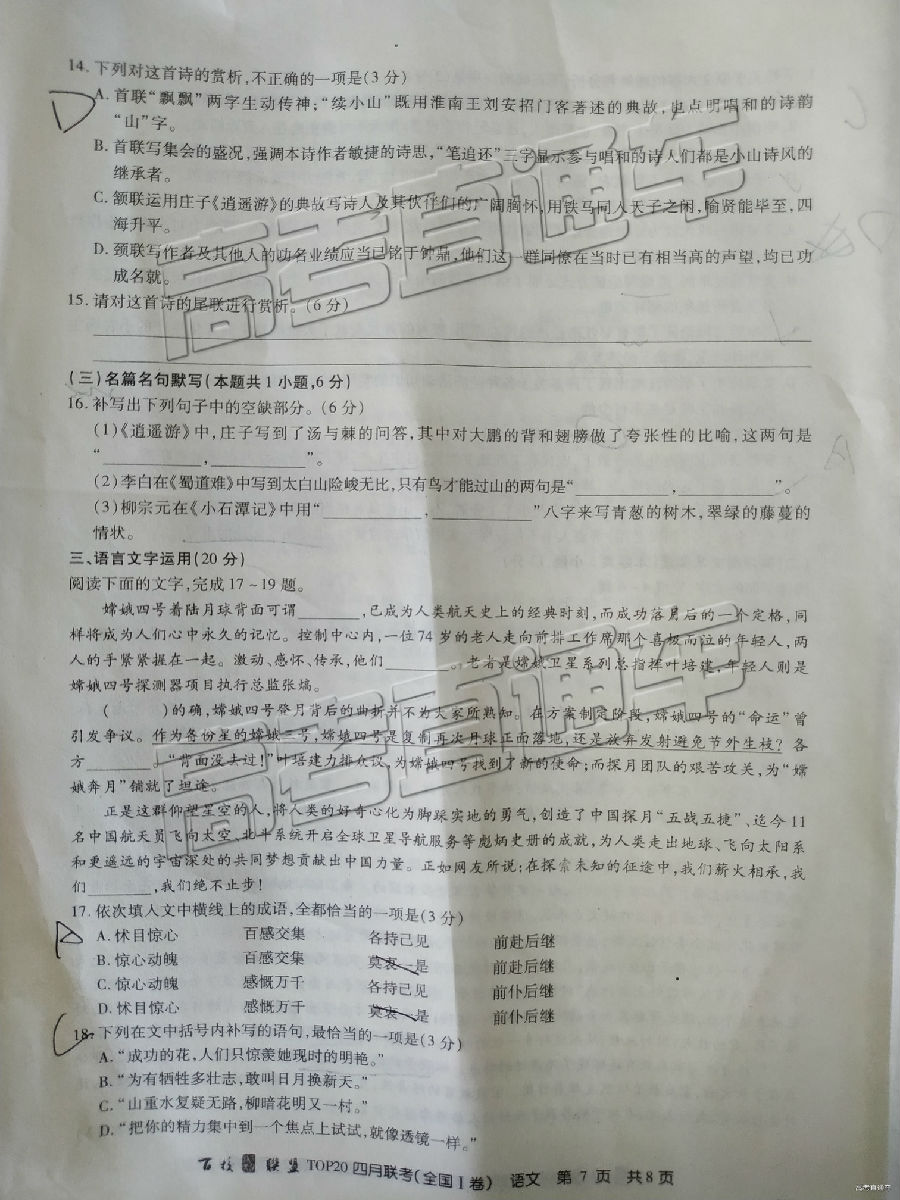 14. 下列对这首诗的赏析,不正确的一项是(3分)
D
A. 首联“飘飘”两字生动传神;“续小山”既用淮南王刘安招门客著述的典故,也点明唱和的诗韵
“山”字。
B. 首联写集会的盛况,强调本诗作者敏捷的诗思,“笔追还”三字显示参与唱和的诗人们都是小山诗风的
继承者。
C. 颔联运用庄子《逍遥游》的典故写诗人及其伙伴们的广阔胸怀,用铁马同入天子之闲,喻贤能毕至,四
海升平。
D. 颈联写作者及其他人的功名业绩应当已铭于钟鼎,他们这一群同僚在当时已有相当高的声望,均已功
成名就。
15. 请对这首诗的尾联进行赏析。(6分)
(三)名篇名句默写(本题共1小题,6分)
16. 补写出下列句子中的空缺部分。(6分)
(1)《逍遥游》中,庄子写到了汤与棘的问答,其中对大鹏的背和翅膀做了夸张性的比喻,这两句是
“________,________”。
(2)李白在《蜀道难》中写到太白山险峻无比,只有鸟才能过山的两句是“________,________”。
(3)柳宗元在《小石潭记》中用“________,________”八字来写青葱的树木,翠绿的藤蔓的
情状。
三、语言文字运用(20分)
阅读下面的文字,完成17~19题。
嫦娥四号着陆月球背面可谓______,已成为人类航天史上的经典时刻,而成功落月后的一个定格,同
样将成为人们心中永久的记忆。控制中心内,一位74岁的老人走向前排工作席那个喜极而泣的年轻人,两
人的手紧紧握在一起。激动、感怀、传承,他们______。老者是嫦娥卫星系列总指挥叶培建,年轻人则是
嫦娥四号探测器项目执行总监张熇。
(  )的确,嫦娥四号登月背后的曲折并不为大家所熟知。在方案制定阶段,嫦娥四号的“命运”曾
引发争议。作为备份星的嫦娥三号,嫦娥四号是复制再次月球正面落地,还是放弃发射避免节外生枝?各
方______,“背面没去过!”叶培建力排众议,为嫦娥四号找到了新的使命;而探月团队的艰苦攻关,为“嫦
娥奔月”铺就了坦途。
正是这群仰望星空的人,将人类的好奇心化为脚踩实地的勇气,创造了中国探月“五战五捷”、迄今11
名中国航天员飞向太空、北斗系统开启全球卫星导航服务等彪炳史册的成就,为人类走出地球、飞向太阳系
和更遥远的宇宙深处的共同梦想贡献出中国力量。正如网友所说:在探索未知的征途中,我们薪火相承,我
们______,我们绝不止步!
17. 依次填入文中横线上的成语,全都恰当的一项是(3分)
A
A. 怵目惊心 百感交集 各持己见 前赴后继
B. 惊心动魄 百感交集 莫衷一是 前赴后继
C. 惊心动魄 感慨万千 各持己见 前仆后继
D. 怵目惊心 感慨万千 莫衷一是 前仆后继
C
18. 下列在文中括号内补写的语句,最恰当的一项是(3分)
A. “成功的花,人们只惊羡她现时的明艳。”
B. “为有牺牲多壮志,敢叫日月换新天。”
C. “山重水复疑无路,柳暗花明又一村。”
D. “把你的精力集中到一个焦点上试试,就像透镜一样。”
百校联盟TOP20四月联考(全国Ⅰ卷) 语文 第7页 共8页
高考直通车
高考直通车
高考直通车